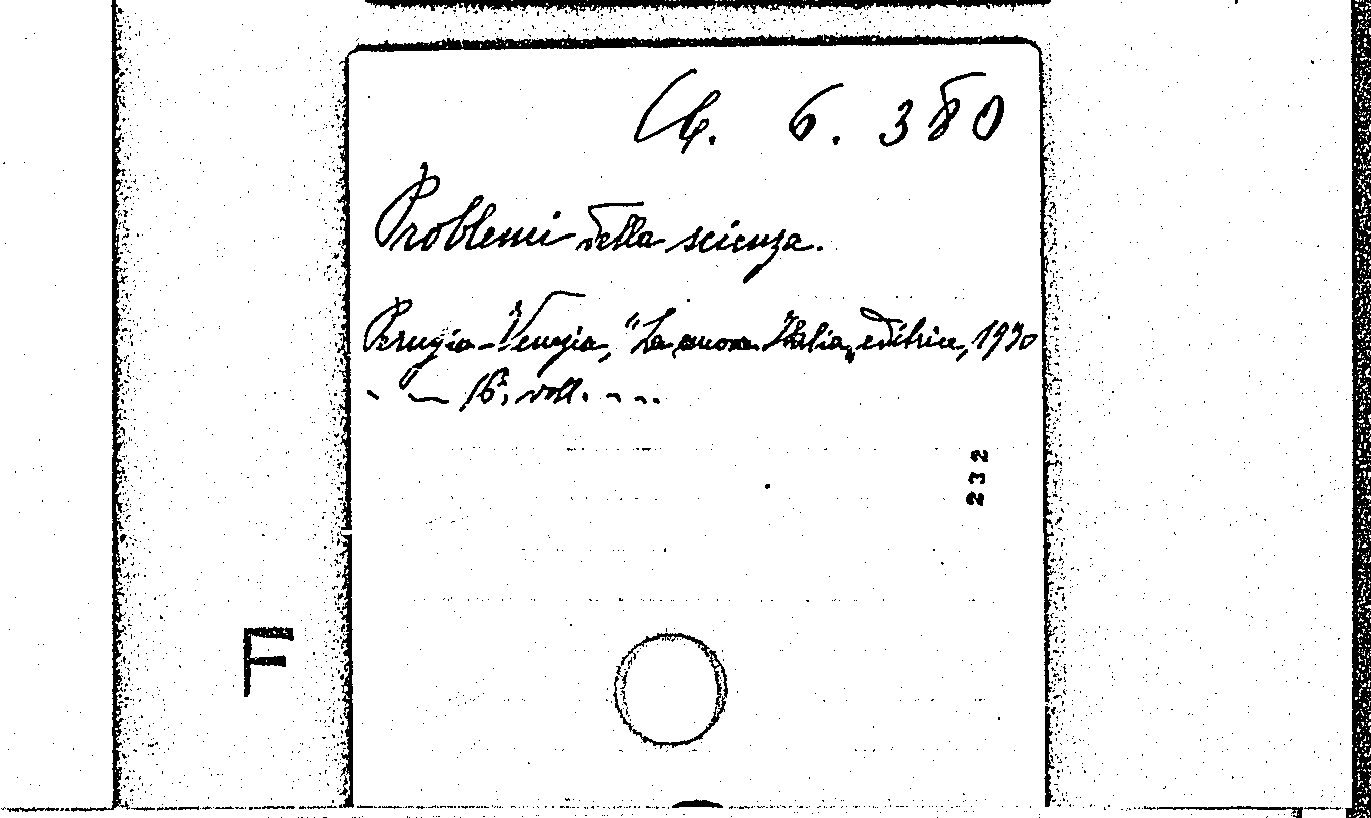 6. 380
Problemi della scienza.
Perugia-Venezia, "La nuova Italia„ editrice, 1930
- — 16°, voll. - - -.
232
F